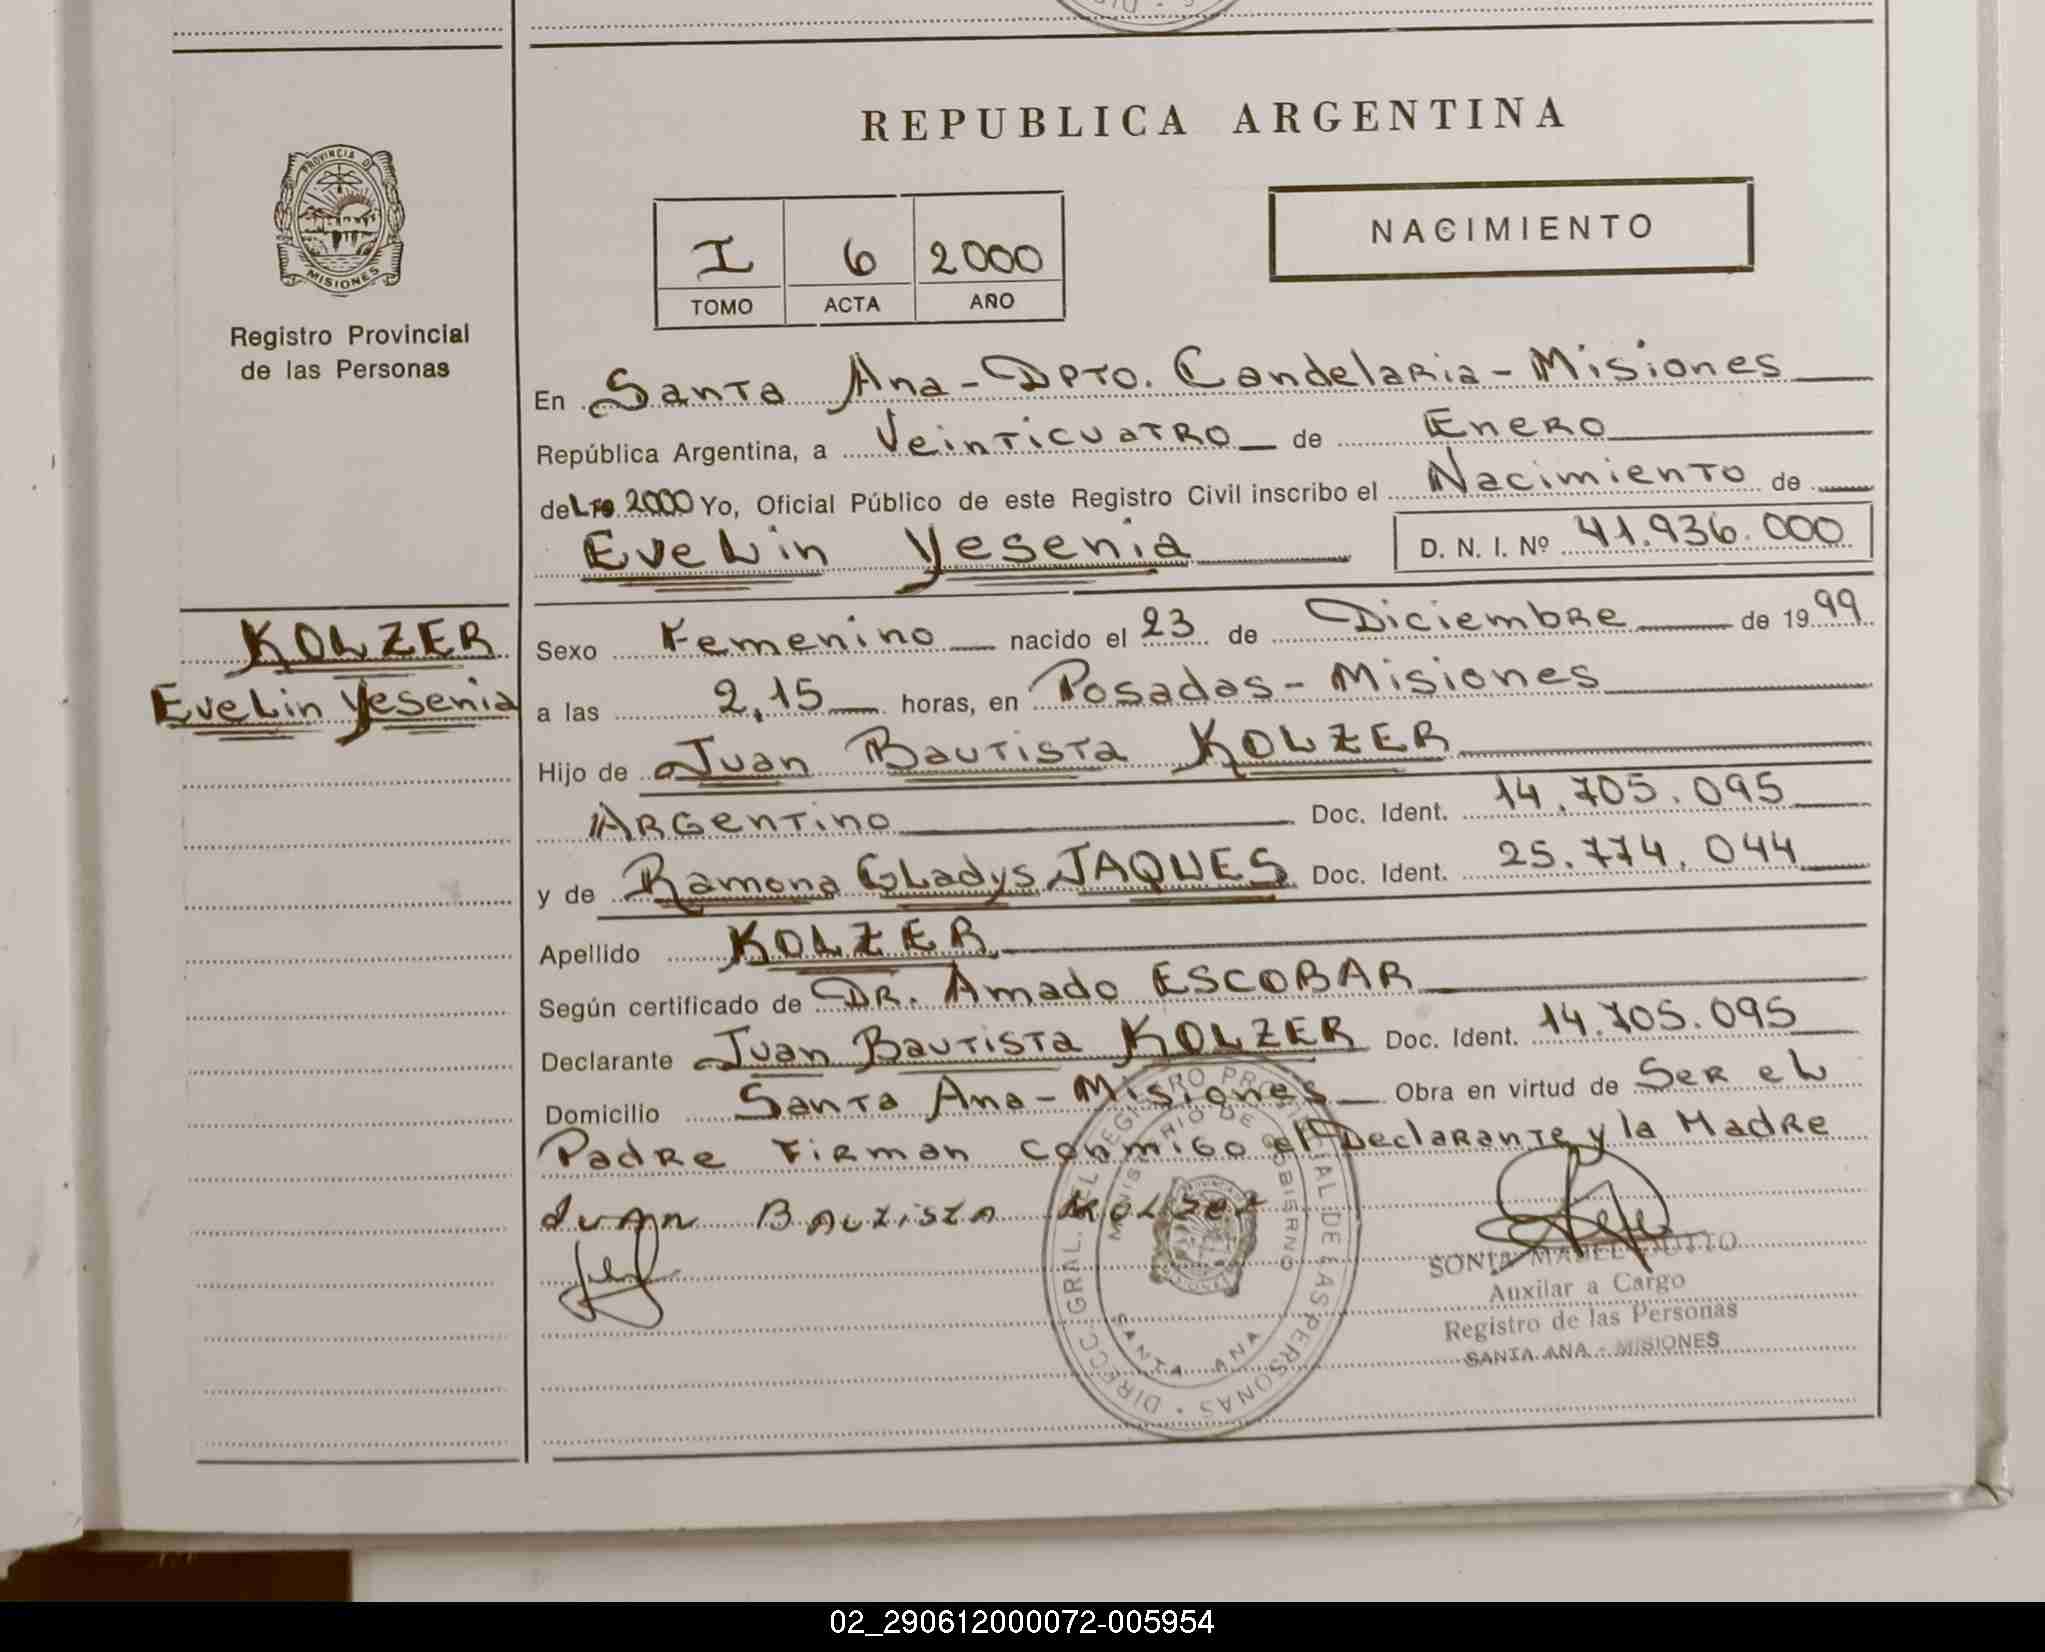 REPUBLICA ARGENTINA
PROVINCIA DE
MISIONES
Registro Provincial
de las Personas
I 6 2000
TOMO ACTA AÑO
NACIMIENTO
En Santa Ana - Dpto. Candelaria - Misiones
República Argentina, a Veinticuatro de Enero
del 2000 Yo, Oficial Público de este Registro Civil inscribo el Nacimiento de
Evelin Yesenia D. N. I. Nº 41.936.000
KOLZER
Evelin Yesenia
Sexo Femenino nacido el 23 de Diciembre de 1999
a las 2,15 horas, en Posadas - Misiones
Hijo de Juan Bautista KOLZER
Argentino Doc. Ident. 14.705.095
y de Ramona Gladys JAQUES Doc. Ident. 25.774.044
Apellido KOLZER
Según certificado de DR. Amado ESCOBAR
Declarante Juan Bautista KOLZER Doc. Ident. 14.705.095
Domicilio Santa Ana - Misiones Obra en virtud de Ser el
Padre Firman conmigo el Declarante y la Madre
Juan Bautista Kolzer
DIRECC. GRAL. DEL REGISTRO PROVINCIAL DE LAS PERSONAS
MINISTERIO DE GOBIERNO
SANTA ANA
SONIA MABEL
Auxilar a Cargo
Registro de las Personas
SANTA ANA - MISIONES
02_290612000072-005954